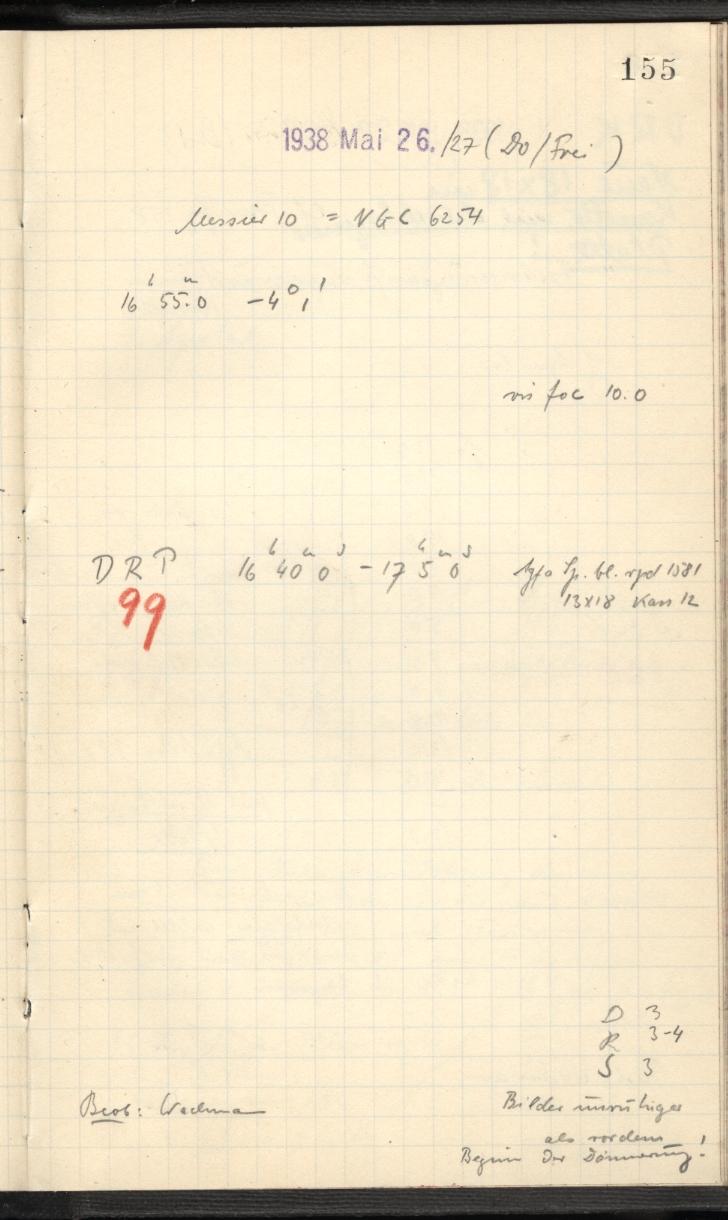 155
1938 Mai 26./27 (Do/Frei)
Messier 10 = NGC 6254
16h 55m.0 -4° 1'
vis foc 10.0
DRP 16h 40m 0s - 17h 5m 0s Agfa Sp. bl. rpd 1581
99 13x18 Kass 12
D 3
R 3-4
S 3
Beob: Wachmann Bilder unruhiger
als vordem
Beginn der Dämmerung!